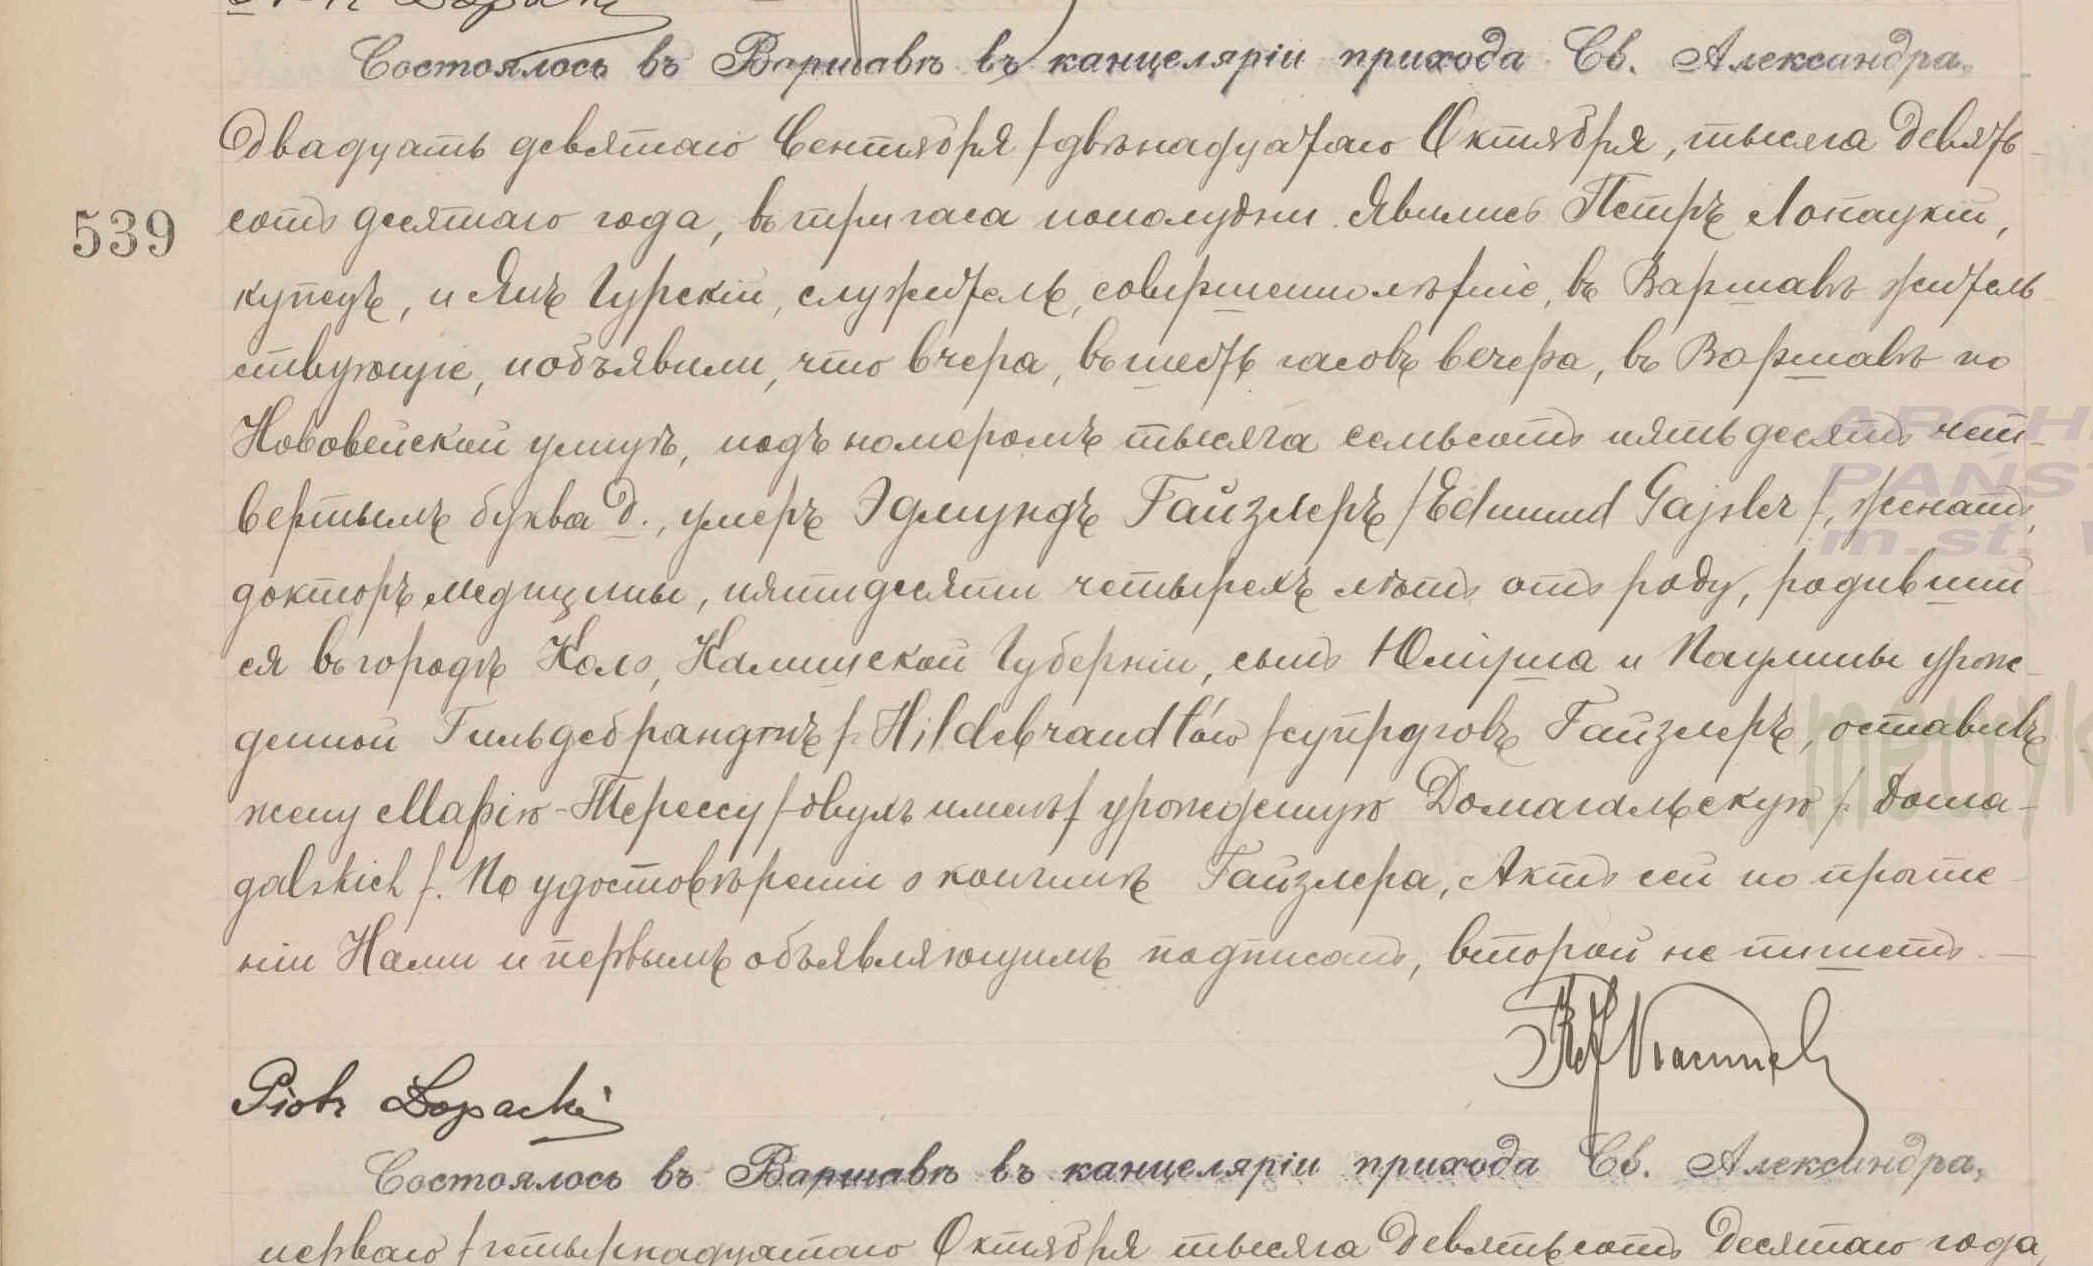 Состоялось въ Варшавѣ въ канцеляріи прихода Св. Александра,
двадцать девятаго Сентября /двѣнадцатаго Октября, тысяча девять
539
сотъ десятаго года, въ три часа пополудни. Явились Петръ Лопацкій,
купецъ, и Янъ Гурскій, служитель, совершеннолѣтніе, въ Варшавѣ житель
ствующіе, и объявили, что вчера, въ шесть часовъ вечера, въ Варшавѣ по
Нововейской улицѣ, подъ номеромъ тысяча семьсотъ пятьдесятъ чет-
вертымъ буква д., умеръ Эдмундъ Гайзлеръ /Edmund Gajsler/, женатъ,
докторъ медицины, пятидесяти четырехъ лѣтъ отъ роду, родивший
ся въ городѣ Коло, Калишской Губерніи, сынъ Юліуша и Паулины урож-
денной Гильдебрандтъ /: Hildebrandtów /супруговъ Гайзлеръ, оставивъ
жену Марію-Терессу /двухъ именъ/ урожденную Домагальскую /: Doma-
galskich /. По удостовѣреніи о кончинѣ Гайзлера, Актъ сей по прочте
ніи Нами и первымъ объявляющимъ подписанъ, второй не пишетъ. —
Piotr Łopacki
Состоялось въ Варшавѣ въ канцеляріи прихода Св. Александра,
перваго /четырнадцатаго Октября тысяча девятьсотъ десятаго года,